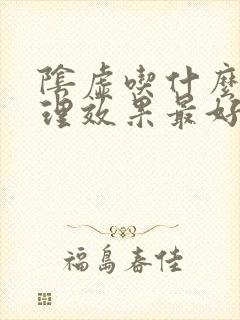 陰虛喫什麼
理效果最好
福島春佳